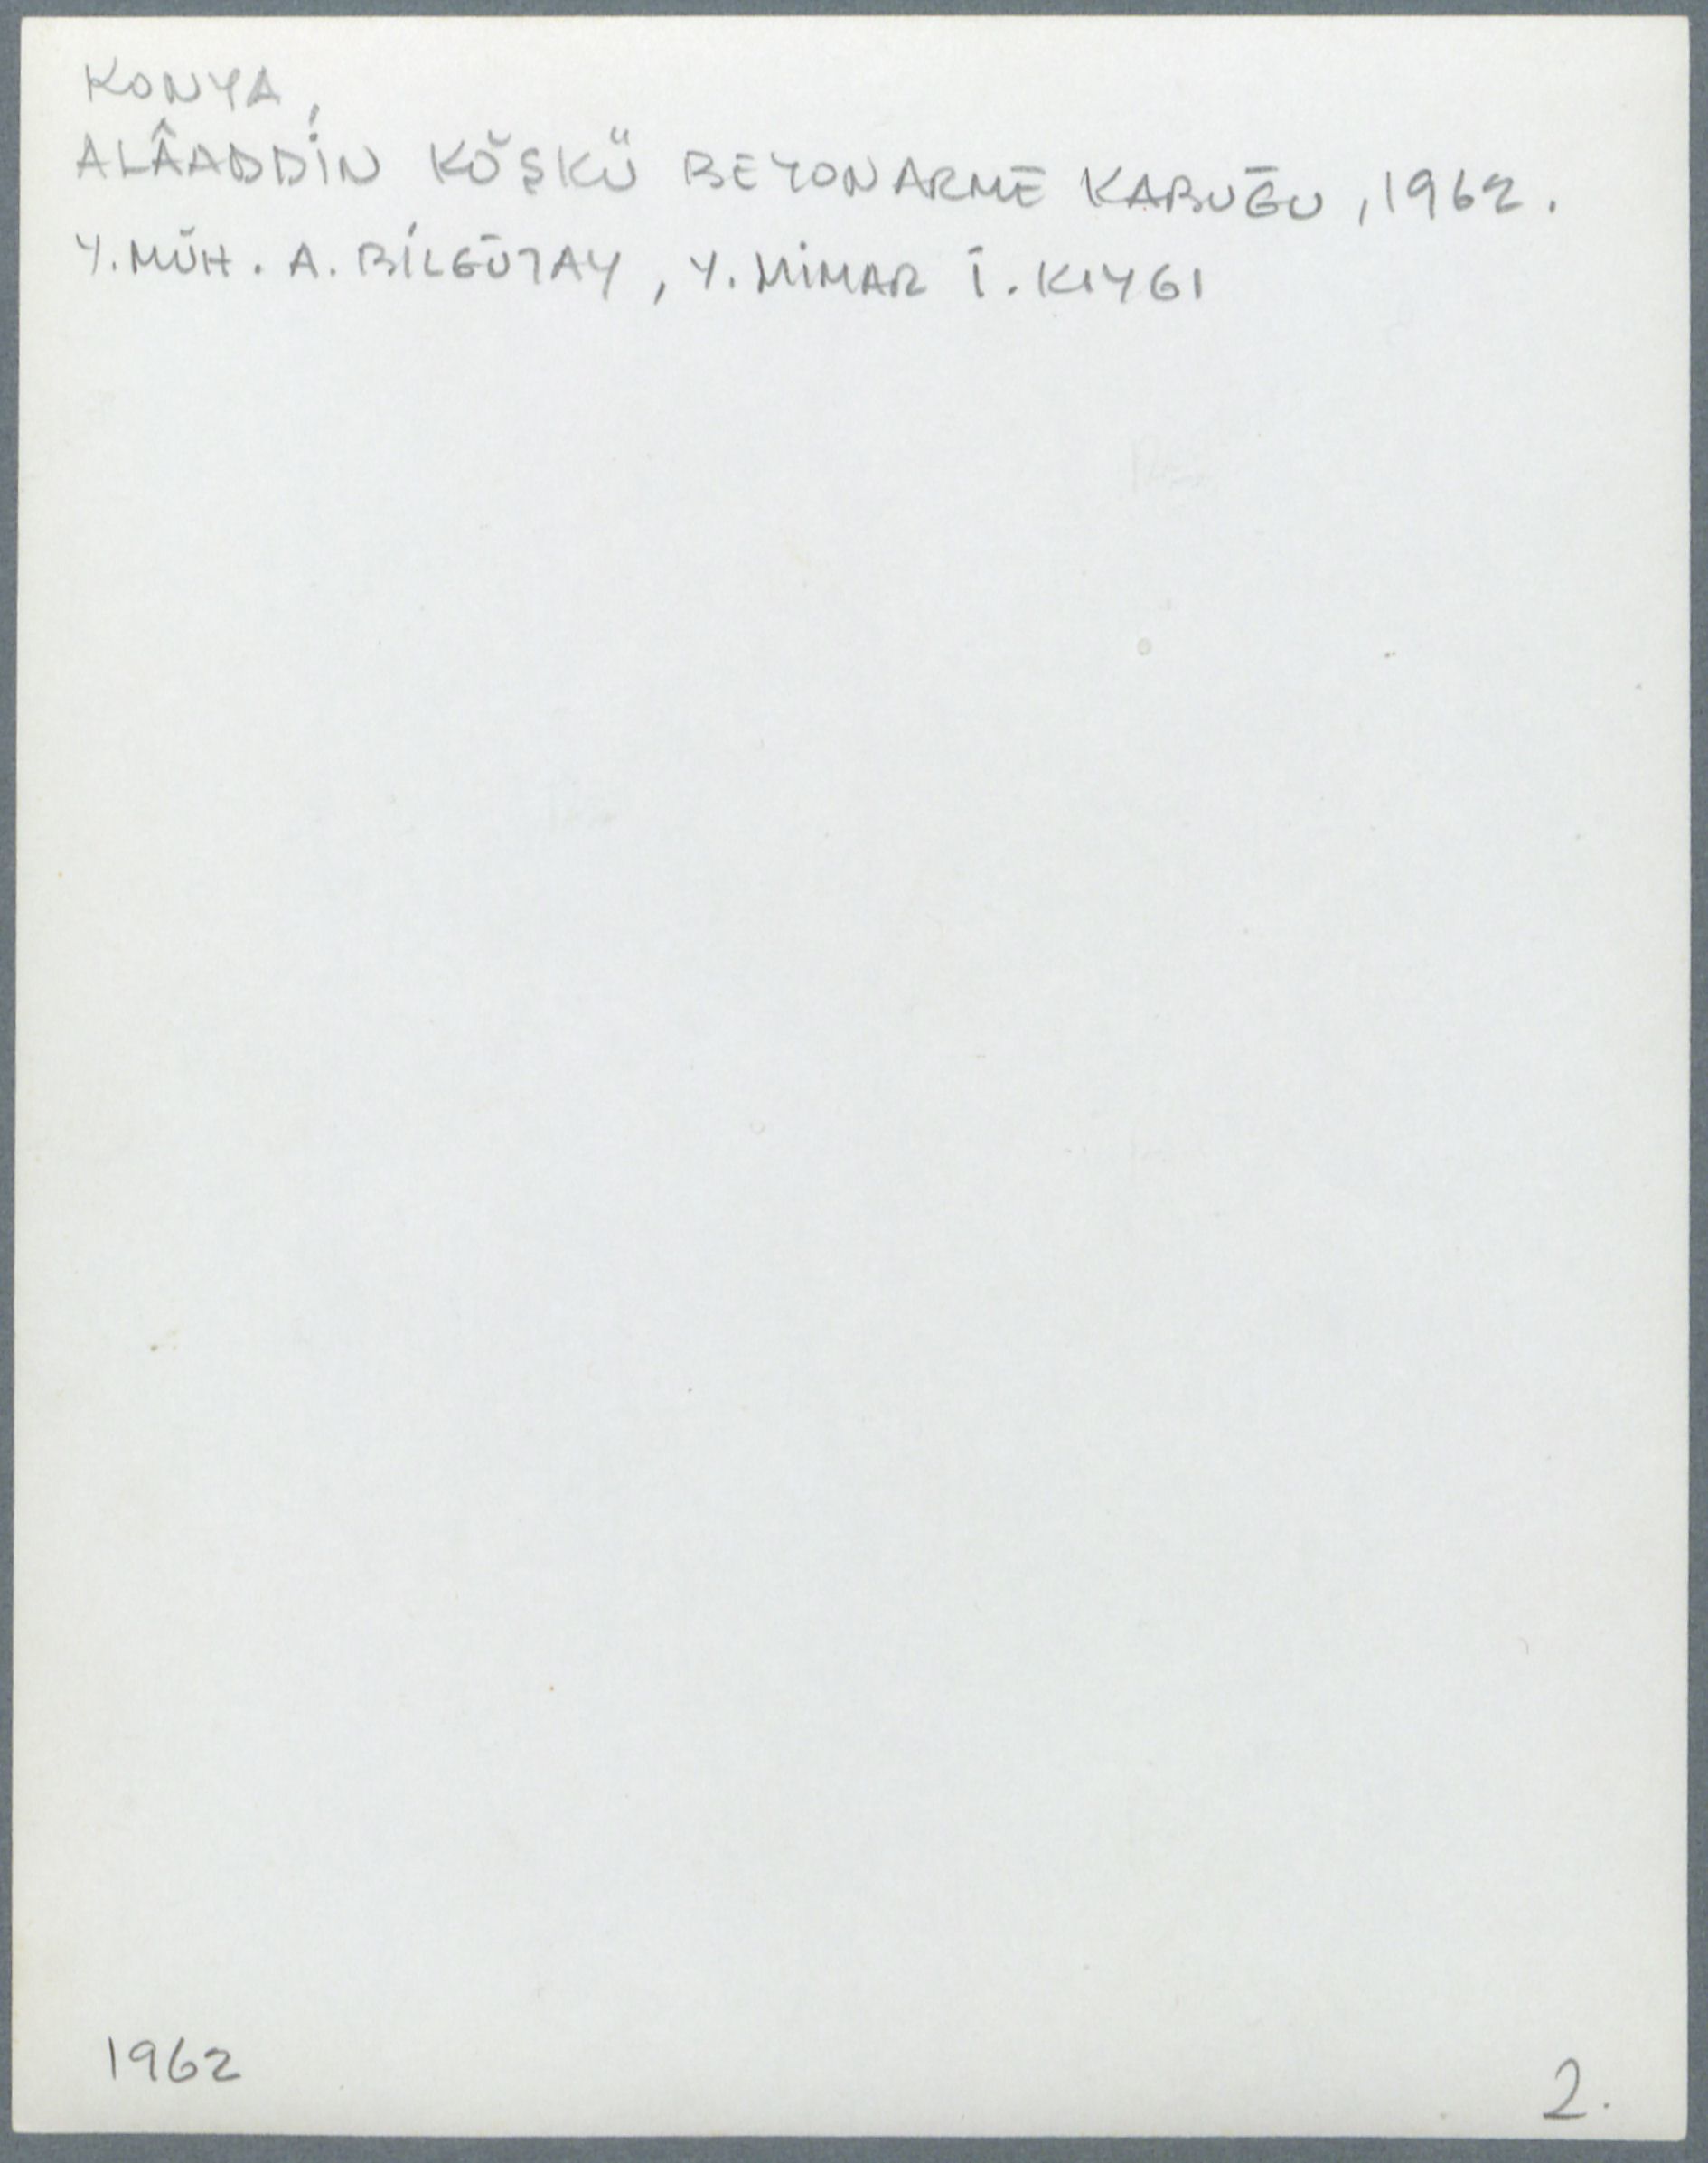 KONYA,
ALÂADDİN KÖŞKÜ BETONARME KABUĞU, 1962.
Y.MÜH. A. BİLGÜTAY, Y. MİMAR İ. KIYGI
1962
2.